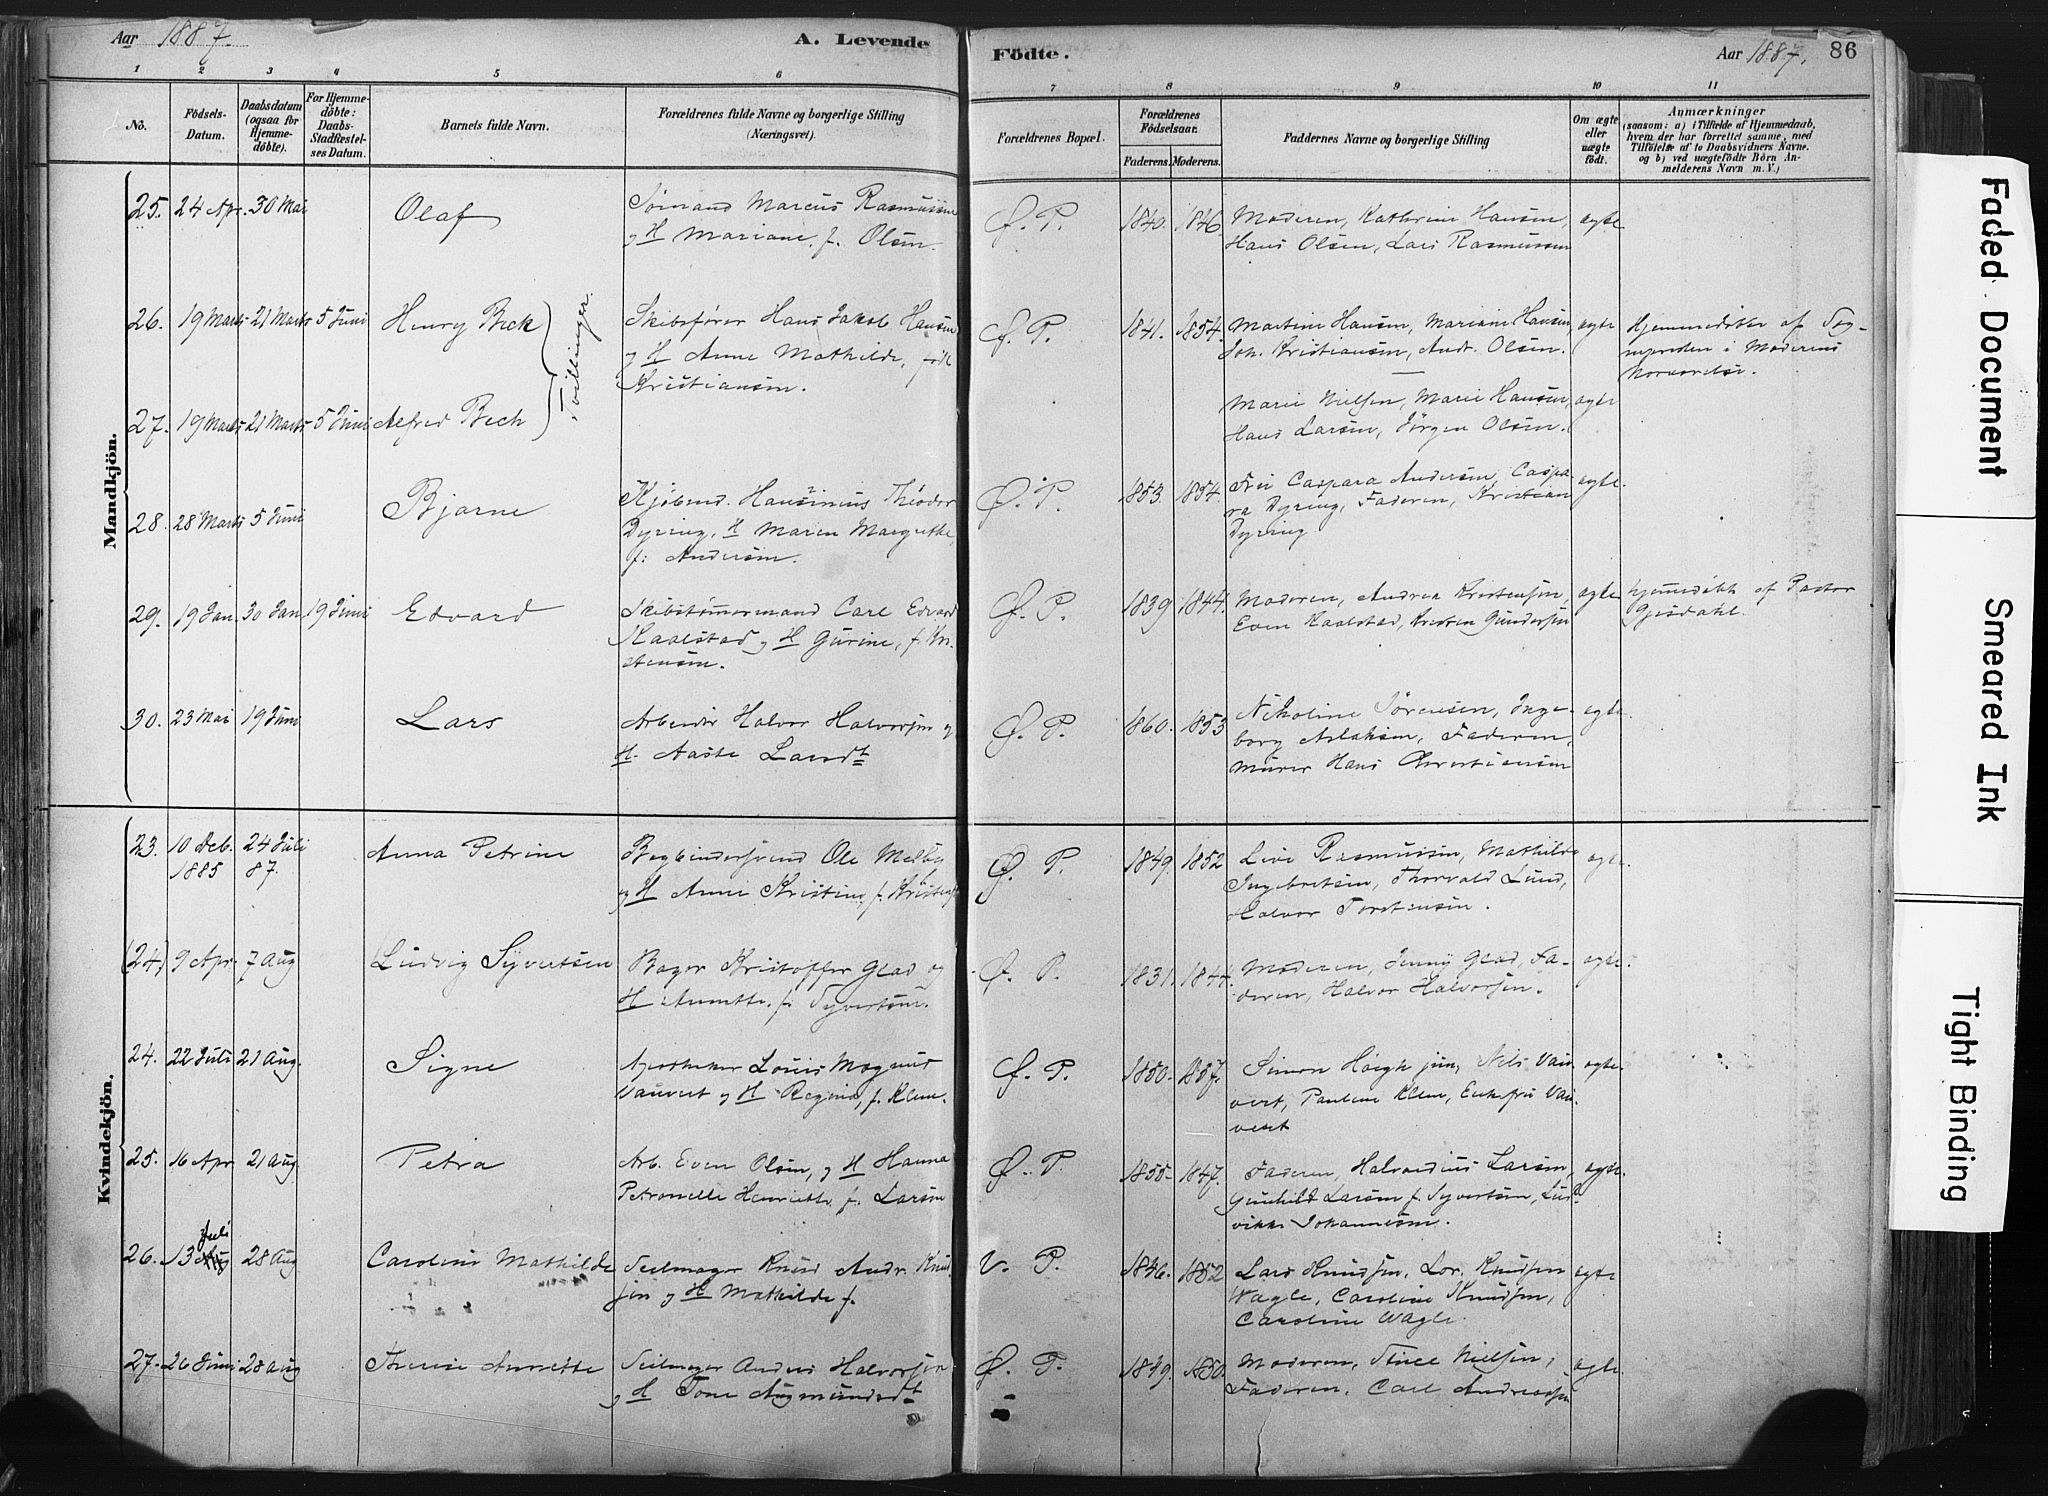 Aar 1887.
A. Levende
Födte.
Aar 1887. 86
1 2 3 4 5 6 7 8 9 10 11
No.
Födsels-
Datum.
Daabsdatum
(ogsaa for
Hjemme-
døbte).
For Hjemme-
döbte:
Daabs-
Stadfæstel-
ses Datum.
Barnets fulde Navn.
Forældrenes fulde Navne og borgerlige Stilling
(Næringsvei).
Forældrenes Bopæl.
Forældrenes
Födselsaar.
Faderens. Moderens.
Faddernes Navne og borgerlige Stilling
Om ægte
eller
uægte
födt.
Anmærkninger
(saasom: a) i Tilfælde af Hjemmedaab,
hvem der har forrettet samme, med
Tilföielse af to Daabsvidners Navne.
og b) ved uægtefödte Börn An-
melderens Navn m. V.)
Mandkjön.
25. 24 Apr. 30 Mai
Olaf
Sømand Marcus Rasmussen
og H Mariane, f. Olsen.
Ø. P. 1840. 1846.
Moderen, Kathrine Hansen,
Hans Olsen, Lars Rasmussen
ægte
26. 19 Marts 21 Marts 5 Juni
Henry Beck
Tvillinger.
Skibsfører Hans Jakob Hansen
og H Anne Mathilde, født
Kristiansen.
Ø. P. 1841. 1854.
Martine Hansen, Mariane Hansen,
Joh. Kristiansen, Andr. Olsen.
ægte
Hjemmedøbte af Sog-
nepresten i Moderens
Nærværelse.
27. 19 Marts 21 Marts 5 Juni
Alfred Bech
Marie Nielsen, Marie Hansen,
Hans Larsen, Jørgen Olsen.
ægte
28. 28 Marts 5 Juni
Bjarne
Kjøbmd. Hansinius Théodor
Dyring, H Maren Margrethe,
f. Andersen.
Ø. P. 1853. 1854.
Fru Caspara Andersen, Caspa-
ra Dyring, Faderen, Kristian
Dyring
ægte
29. 19 Jan. 30 Jan. 19 Juni
Edvard
Skibstømmermand Carl Edvard
Kaalstad og H Gurine, f. Kri-
stensen.
Ø. P. 1839 1844.
Moderen, Andrea Kristensen,
Even Kaalstad, Kristen Gundersen
ægte
hjemmedøbt af Pastor
Gjesdahl.
30. 23 Mai 19 Juni
Lars
Arbeider Halvor Halvorsen og
H. Aaste Larsdt
Ø. P. 1860. 1853
Nikoline Sørensen, Inge-
borg Aslaksen, Faderen,
Murer Hans Christiansen
ægte
Kvindekjön.
23. 10 Deb. 24 Juli
1885 87.
Anna Petrine
Bogbindersvend Ole Melby
og H Anne Kristine, f. Kristens
Ø. P. 1849. 1852
Lovise Rasmussen, Mathilde
Ingebretsen, Thorvald Lund,
Halvor Torstensen.
ægte
(24) 9 Apr. 7 Aug
(Ludvig Syvertsen
Bager Kristoffer Glad og
H Annette, f. Syvertsen.
Ø. P. 1831. 1844.
Moderen, Jenny Glad, Fa-
deren, Halvor Halvorsen.
ægte
24. 22 Juli 21 Aug.
Signe
Apotheker Louis Magnus
Vauvert og H Regine, f. Klem.
Ø. P. 1850. 1857.
Simon Høigh jun, Nils Vau-
vert, Pauline Klem, Enkefru Vau-
vert
ægte
25. 16 Apr 21 Aug.
Petra
Arb. Even Olsen, og H Hanna
Petronelle Henriette, f. Larsen
Ø. P. 1855. 1847.
Faderen, Halvardius Larsen,
Gunhild Larsen f. Syvertsen, Lud-
vikke Johannesen.
ægte
Juli
26. 13 Aug 28 Aug
Caroline Mathilde
Seilmager Knud Andr. Knud-
sen og H Mathilde f.
V. P. 1846. 1852
Lars Knudsen, Lor. Knudsen
Wagle, Caroline Knudsen,
Caroline Wagle.
ægte
27. 26 Juni 28 Aug
Therese Annette
Seilmager Anders Halvorsen
og H Tone Aagmundsdt
Ø. P. 1849. 1850.
Moderen, Sine Nielsen,
Faderen, Carl Andreassen
ægte.
Faded Document
Smeared Ink
Tight Binding